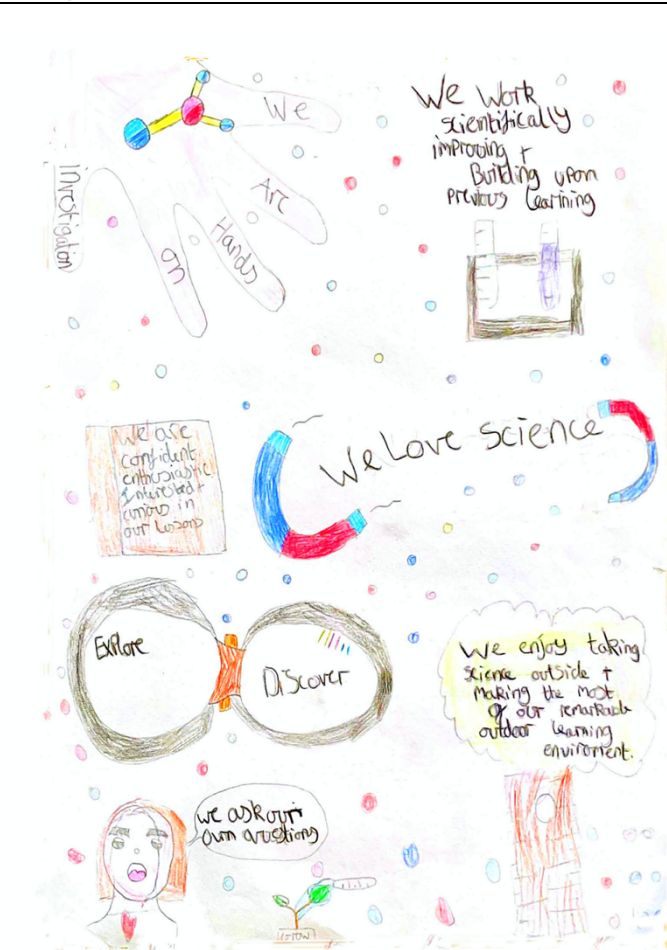 We
Are
Hands
on
INvestigation
We Work
scientifically
improving +
Building upon
previous learning
We are
confident
enthusiastic
Interested +
curious in
our lessons
We Love Science
Explore
Discover
We enjoy taking
science outside +
making the most
of our remarkable
outdoor learning
environment.
we ask our
own questions